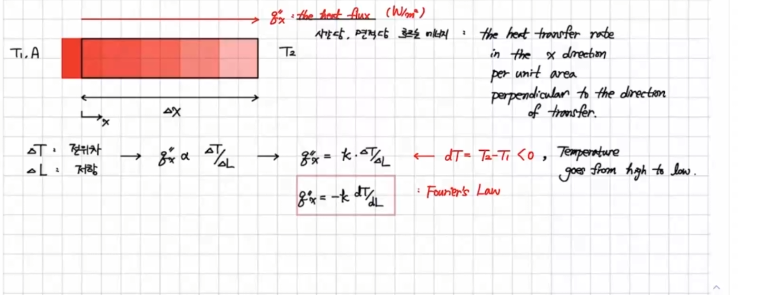 q″x : the heat flux (W/m²)
시간당, 면적당 흐르는 에너지 : the heat transfer rate
in the x direction
per unit area
perpendicular to the direction
of transfer.
T₁, A
T₂
ΔX
x
ΔT : 전위차 → q″x ∝ ΔT/ΔL → q″x = k · ΔT/ΔL ← dT = T₂-T₁ < 0, Temperature
goes from high to low.
ΔL : 저항
q″x = -k dT/dL : Fourier's Law